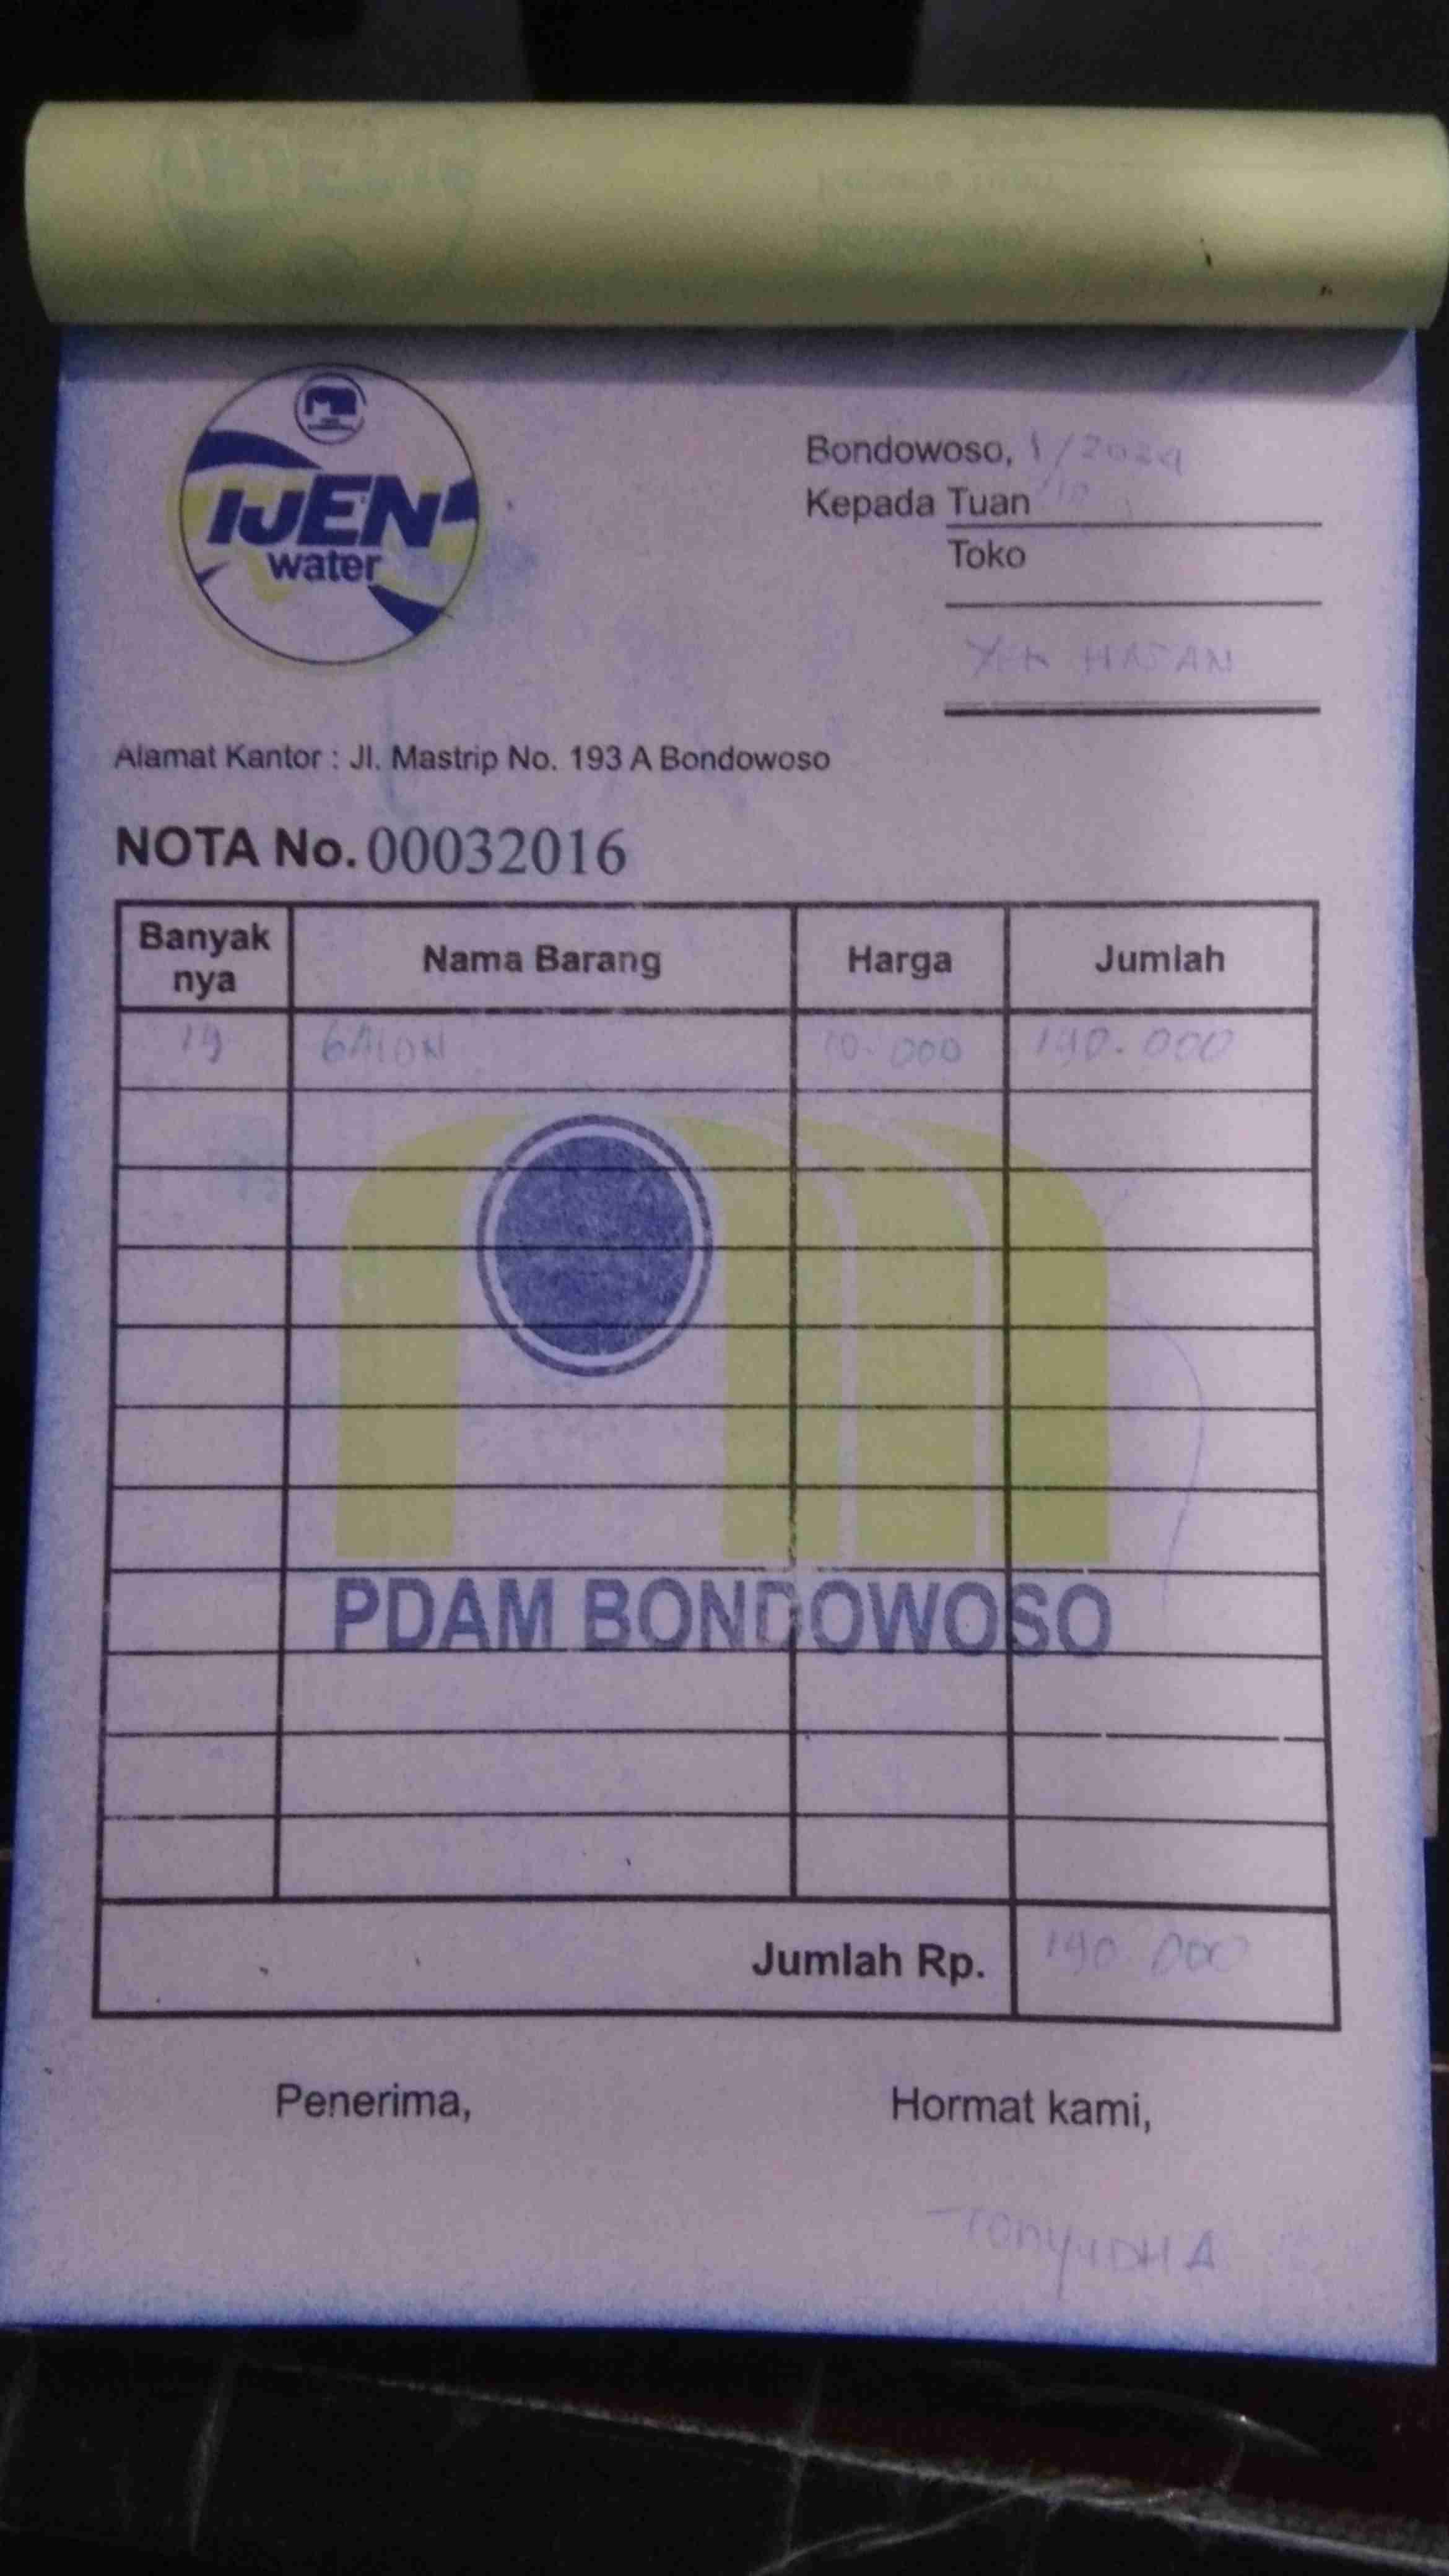 IJEN
water
Bondowoso, 1/10 2024
Kepada Tuan
Toko
YEK HASAN
Alamat Kantor : Jl. Mastrip No. 193 A Bondowoso
NOTA No. 00032016
Banyak nya Nama Barang Harga Jumlah
19 GALON 10.000 190.000
PDAM BONDOWOSO
Jumlah Rp. 190 000
Penerima, Hormat kami,